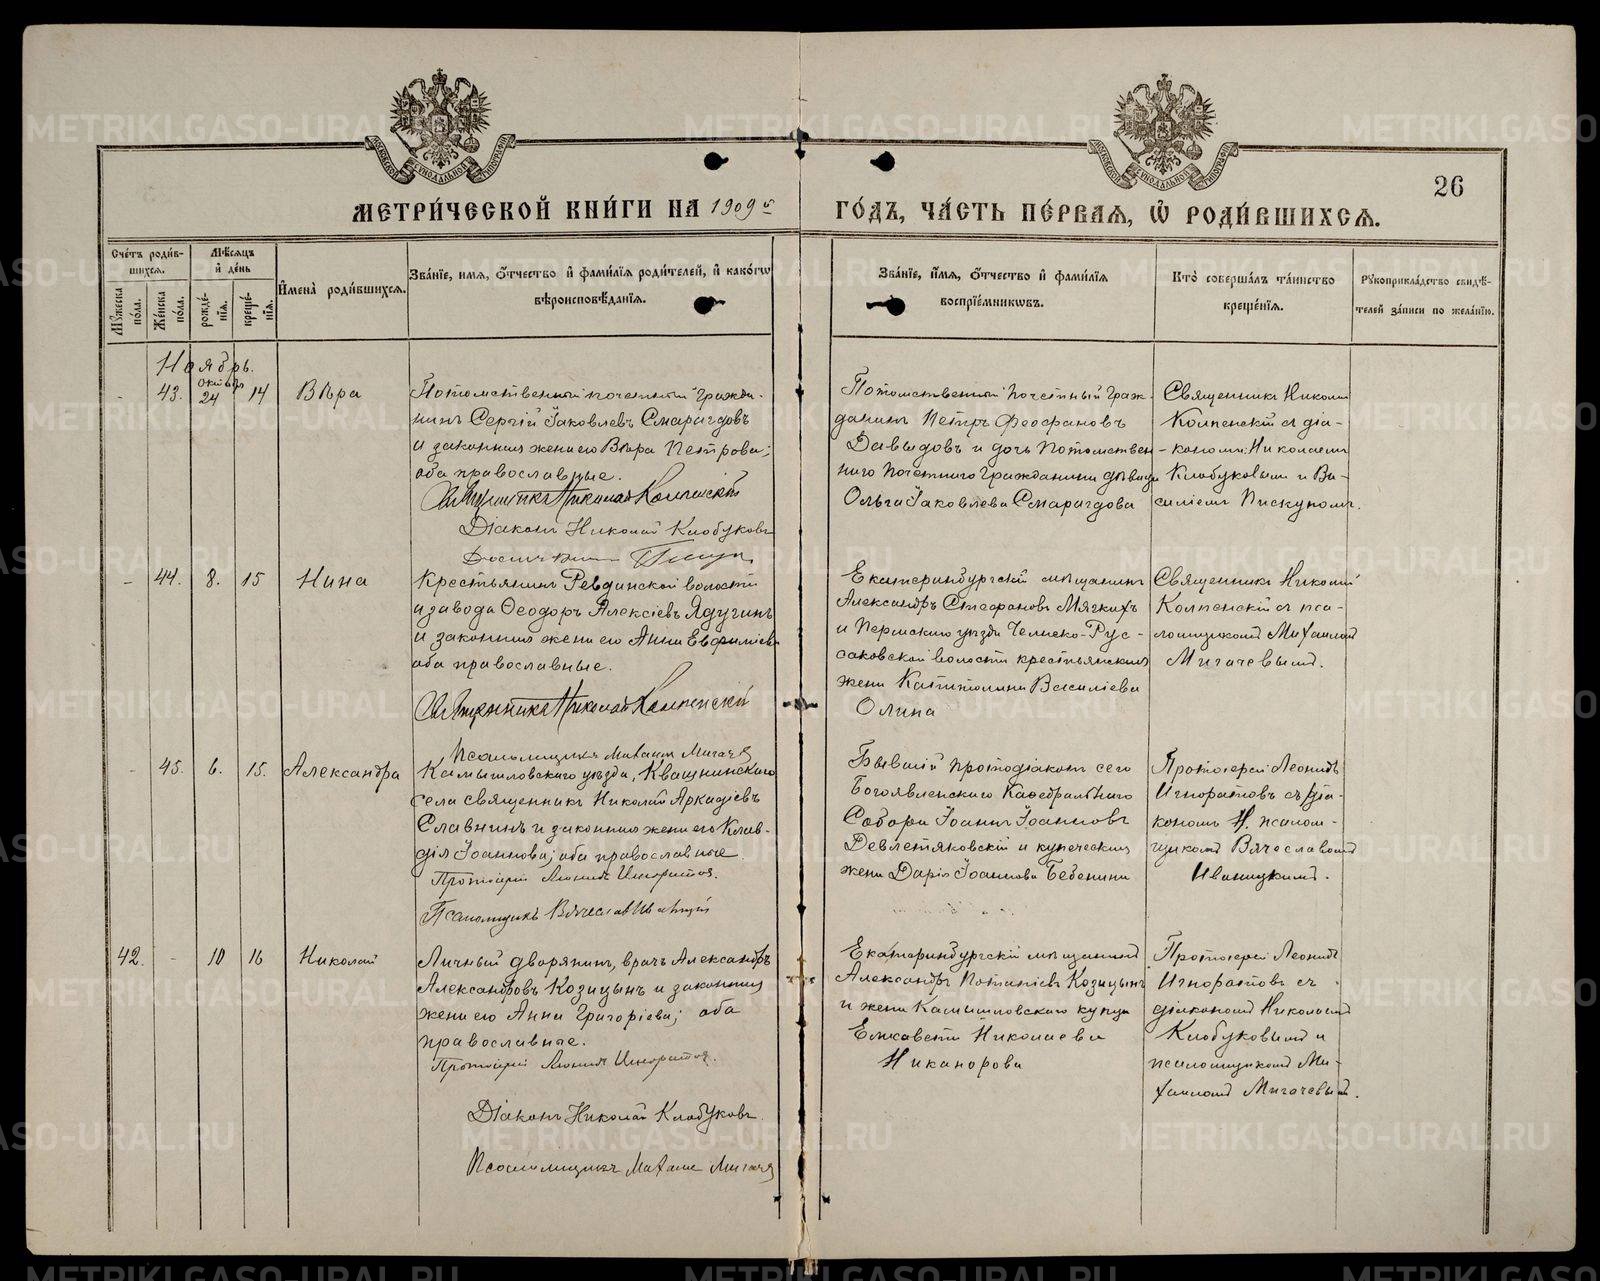 26
МЕТРИ́ЧЕСКОЙ КНИ́ГИ НА 1909й ГО́ДЪ, ЧА́СТЬ ПЕ́РВАѦ, Ѡ҆ РОДИ́ВШИХСѦ.
Сче́тъ роди́вшихсѧ.
Мꙋ́жеска по́ла.
Же́нска по́ла.
Мѣ́сѧцъ и҆ де́нь
рожде́нїѧ.
креще́нїѧ.
И҆мена̀ роди́вшихсѧ.
Зва́нїе, и҆мѧ, ѻ҆́тчество и҆ фами́лїѧ роди́телей, и҆ како́гѡ
вѣроисповѣ́данїѧ.
Зва́нїе, и҆́мѧ, ѻ҆́тчество и҆ фами́лїѧ
воспрїе́мникѡвъ.
Кто̀ соверша́лъ та́инство
креще́нїѧ.
Рꙋкоприкла́дство свидѣ́-
телей за́писи по жела́нїю.
Ноябрь.
- 43. Октябр 24 14 Вѣра
Потомственный почетный гражда-
нинъ Сергій Іаковлевъ Смарагдовъ
и законная жена его Вѣра Петрова;
оба православные.
Священникъ Николай Комленскій
Діаконъ Николай Клобуковъ
Потомственный Почетный Граж-
данинъ Петръ Феофановъ
Давыдовъ и дочь Потомствен-
наго Почетнаго Гражданина дѣвица
Ольга Іаковлева Смарагдова
Священникъ Николай
Комленскій съ діа-
кономъ Николаемъ
Клобуковым и Ва-
силіемъ Пискуномъ.
- 44. 8. 15 Нина
Крестьянинъ Ревдинской волости
и завода Ѳеодоръ Алексіевъ Ядугинъ
и законная жена его Анна Евфиміева
оба православные.
Священникъ Николай Комленскій
Псаломщикъ Михаилъ Мигачев
Екатеринбургскій мѣщанинъ
Александръ Стефановъ Мягкихъ
и Пермскаго уѣзда Челнеко-Рус-
саковской волости крестьянская
жена Капитолина Василіева
Олина
Священникъ Николай
Комленскій съ пса-
ломщикомъ Михаиломъ
Мигачевымъ.
- 45. 6. 15. Александра
Камышловскаго уѣзда, Квашнинскаго
села священникъ Николай Аркадіевъ
Славнинъ и законная жена его Клав-
дія Іоаннова; оба православные.
Протоіерей Леонидъ Игноратов.
Псаломщикъ Вячеслав Иваницкій
Бывшій протодіаконъ сего
Богоявленскаго Каѳедральнаго
Собора Іоаннъ Іоанновъ
Девлетяковскій и купеческая
жена Дарія Іоаннова Бебенина
Протоіерей Леонидъ
Игноратовъ съ діа-
кономъ Н. псалом-
щикомъ Вячеславомъ
Иваницкимъ.
42. - 10 16 Николай
Личный дворянинъ, врачъ Александръ
Александровъ Козицынъ и законная
жена его Анна Григоріева; оба
православные.
Протоіерей Леонидъ Игноратов.
Діаконъ Николай Клобуковъ.
Псаломщикъ Михаил Мигачев
Екатеринбургскій мѣщанинъ
Александръ Потапіевъ Козицынъ
и жена Камышловскаго купца
Елисавета Николаева
Никанорова
Протоіерей Леонидъ
Игноратовъ съ
діакономъ Николаемъ
Клобуковымъ и
псаломщикомъ Ми-
хаиломъ Мигачевым.
METRIKI.GASO-URAL.RU